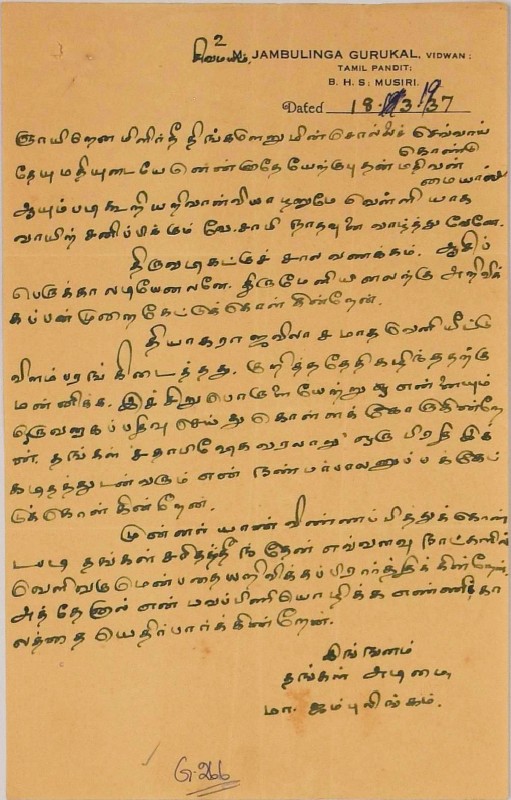 2
சிவமயம்.
M. JAMBULINGA GURUKAL, VIDWAN;
TAMIL PANDIT;
B. H. S; MUSIRI.
Dated 18. 3. 1937
ஞாயிறென மிளிர்தீ திங்களெறு மின்சொல்லச் செவ்வாய்
தேயுமதியுடையே னென்னதேயேற்பு தன் மதிவன் கொண்
ஆயும்படி கூறியறிவான் வியாழனுமே வெள்ளி யாத மையால்
வாயிற் சனிப்பிக்கும் வே. சாமி நாதவுனை வாழ்த்து வேனே.
திருவடிகட்குச் சால வணக்கம். ஆசிப்
பெருக்கா லடியேனலனே. திருமேனியினலத்தை அறிவிக்
கப்பன்முறை கேட்டுக்கொள் கின்றேன்.
தியாகராஜவிலாச மாத வெளியீட்டு
விளம்பரங் கிடைத்தது. குறித்ததேதி கழிந்ததற்கு
மன்னிக்க. இச் சிறு பொருளை யேற்று என்னையும்
ஒருவனாகப்பதிவு செய்து கொள்ளக் கோருகின்றே
ன். தங்கள் சதாபிஷேக வரலாறு ஒரு பிரதி இக்
கடிதத்துடன் வரும் என் நண்பர்பாலனுப்பக் கேட்
டுக்கொள் கின்றேன்.
முன்னர் யான் விண்ணப்பித்துக்கொண்
டபடி தங்கள் சரிதத்தீந் தேன் எவ்வளவு நாட்களில்
வெளிவருமென்பதை யறிவிக்கப் பிரார்த்திக் கின்றேன்.
அத் தேனால் என் மலப்பிணியொழிக்க எண்ணிக் கா
லத்தை யெதிர்பார்க் கின்றேன்.
இங்ஙனம்
தங்கள் அடிமை
மா. ஜம்புலிங்கம்.
G. 266